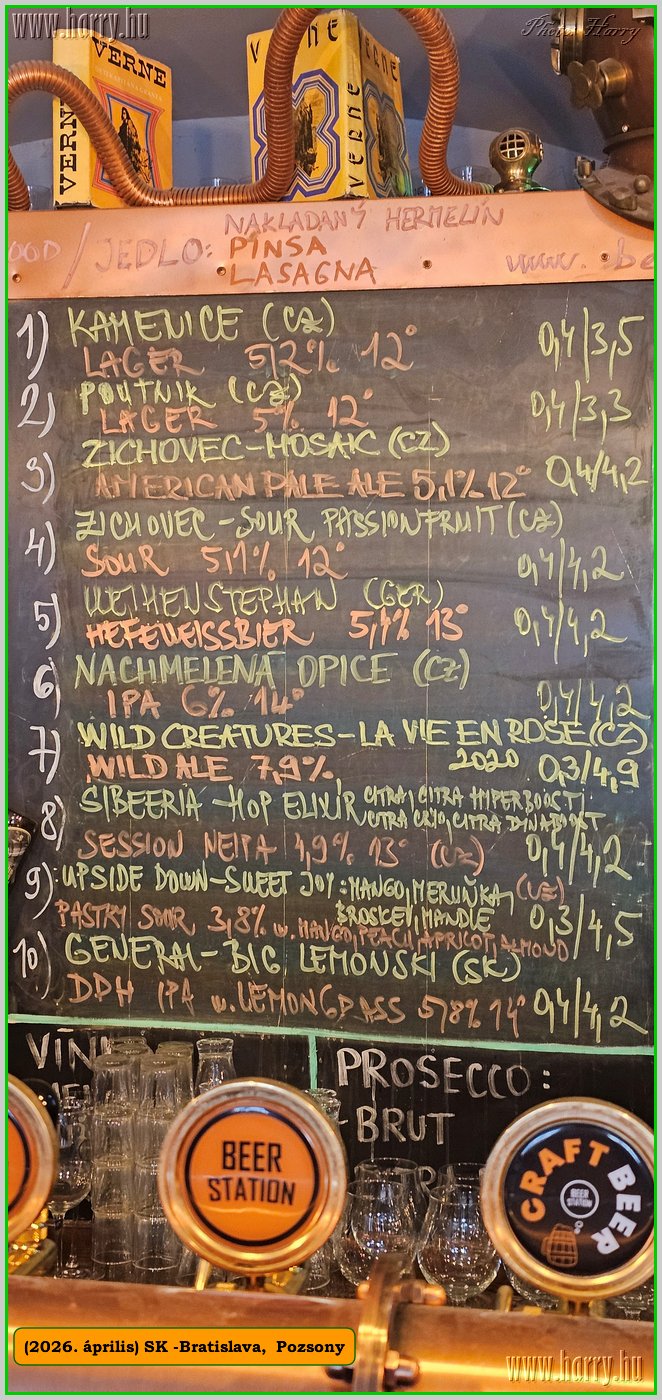 www.harry.hu
Photo: Harry
VERNE
VERNE
VERNE
VERNE
NAKLADANÝ HERMELÍN
/JEDLO: PINSA
LASAGNA
www. be
1) KAMENICE (CZ)
LAGER 5,2% 12° 0,4/3,5
2) POUTNIK (CZ)
LAGER 5% 12° 0,4/3,3
3) ZICHOVEC-MOSAIC (CZ)
AMERICAN PALE ALE 5,1% 12° 0,4/4,2
4) ZICHOVEC-SOUR PASSIONFRUIT (CZ)
SOUR 5,1% 12° 0,4/4,2
5) WEIHENSTEPHAN (GER)
HEFEWEISSBIER 5,4% 13° 0,4/4,2
6) NACHMELENÁ OPICE (CZ)
IPA 6% 14° 0,4/4,2
7) WILD CREATURES-LA VIE EN ROSE (CZ)
WILD ALE 7,9% 2020 0,3/4,9
8) SIBEERIA-HOP ELIXÍR CITRA, CITRA HIPERBOOST,
CITRA CRYO, CITRA DINABOOST
SESSION NEIPA 4,9% 13° (CZ) 0,4/4,2
9) UPSIDE DOWN-SWEET JOY: MANGO, MERUŇKA, (CZ)
BROSKEV, MANDLE
PASTRY SOUR 3,8% w. MANGO, PEACH, APRICOT, ALMOND 0,3/4,5
10) GENERAL-BIG LEMONSKI (SK)
DDH IPA w. LEMONGRASS 5,8% 14° 0,4/4,2
PROSECCO:
-BRUT
BEER
STATION
CRAFT BEER
BEER
STATION
(2026. április) SK -Bratislava, Pozsony
www.harry.hu